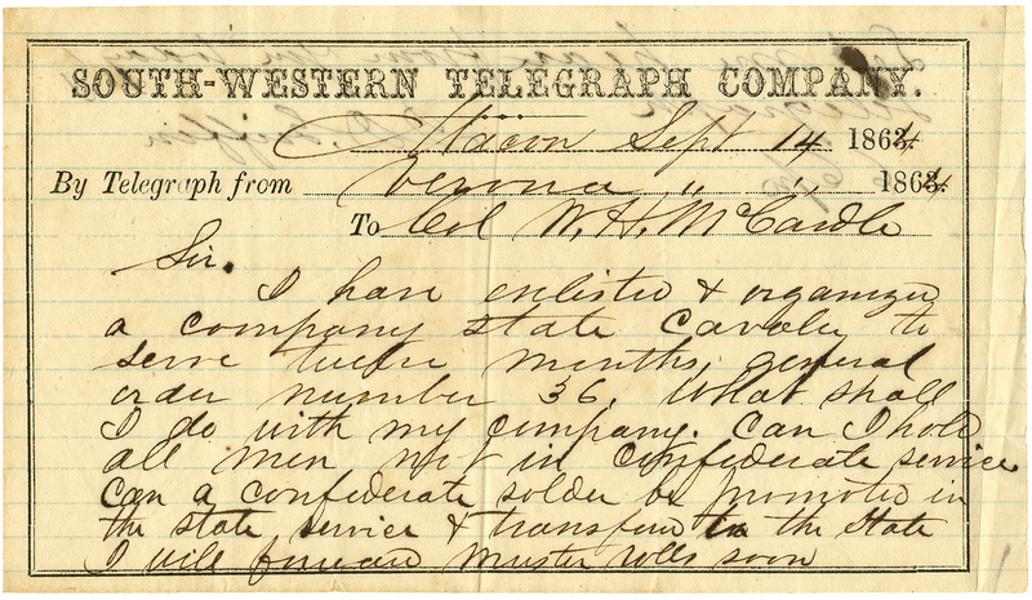 SOUTH-WESTERN TELEGRAPH COMPANY.
Macon Sept 14 1864
By Telegraph from Verona " " 1864
To Col W. H. McCardle
Sir.
I have enlisted & organized
a company state Cavalry to
serve twelve months, general
order number 36. What shall
I do with my company. Can I hold
all men not in confederate service
Can a confederate solder be promoted in
the state service & transferd to the State
I will forward Muster rolls soon